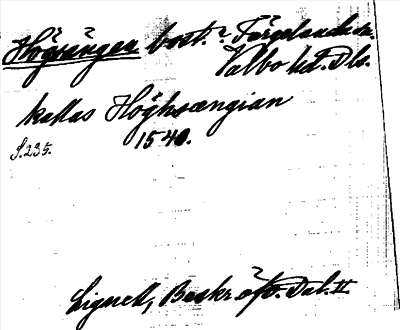 Högsängen bost.? Färgelanda sn.
Valbo hd. Dls.
kallas Höghsængian
1540.
S. 235.
Lignell, Beskr. öfv. Dal. II